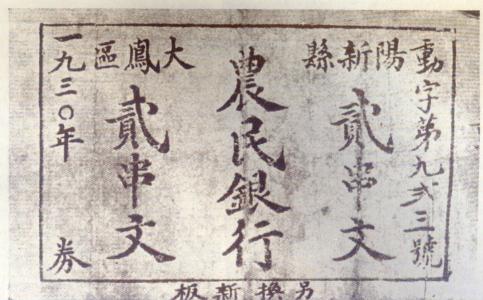 動字第九弍三號
陽新縣
貳串文
農民銀行
大鳳區
貳串文
一九三〇年 券
另換新板